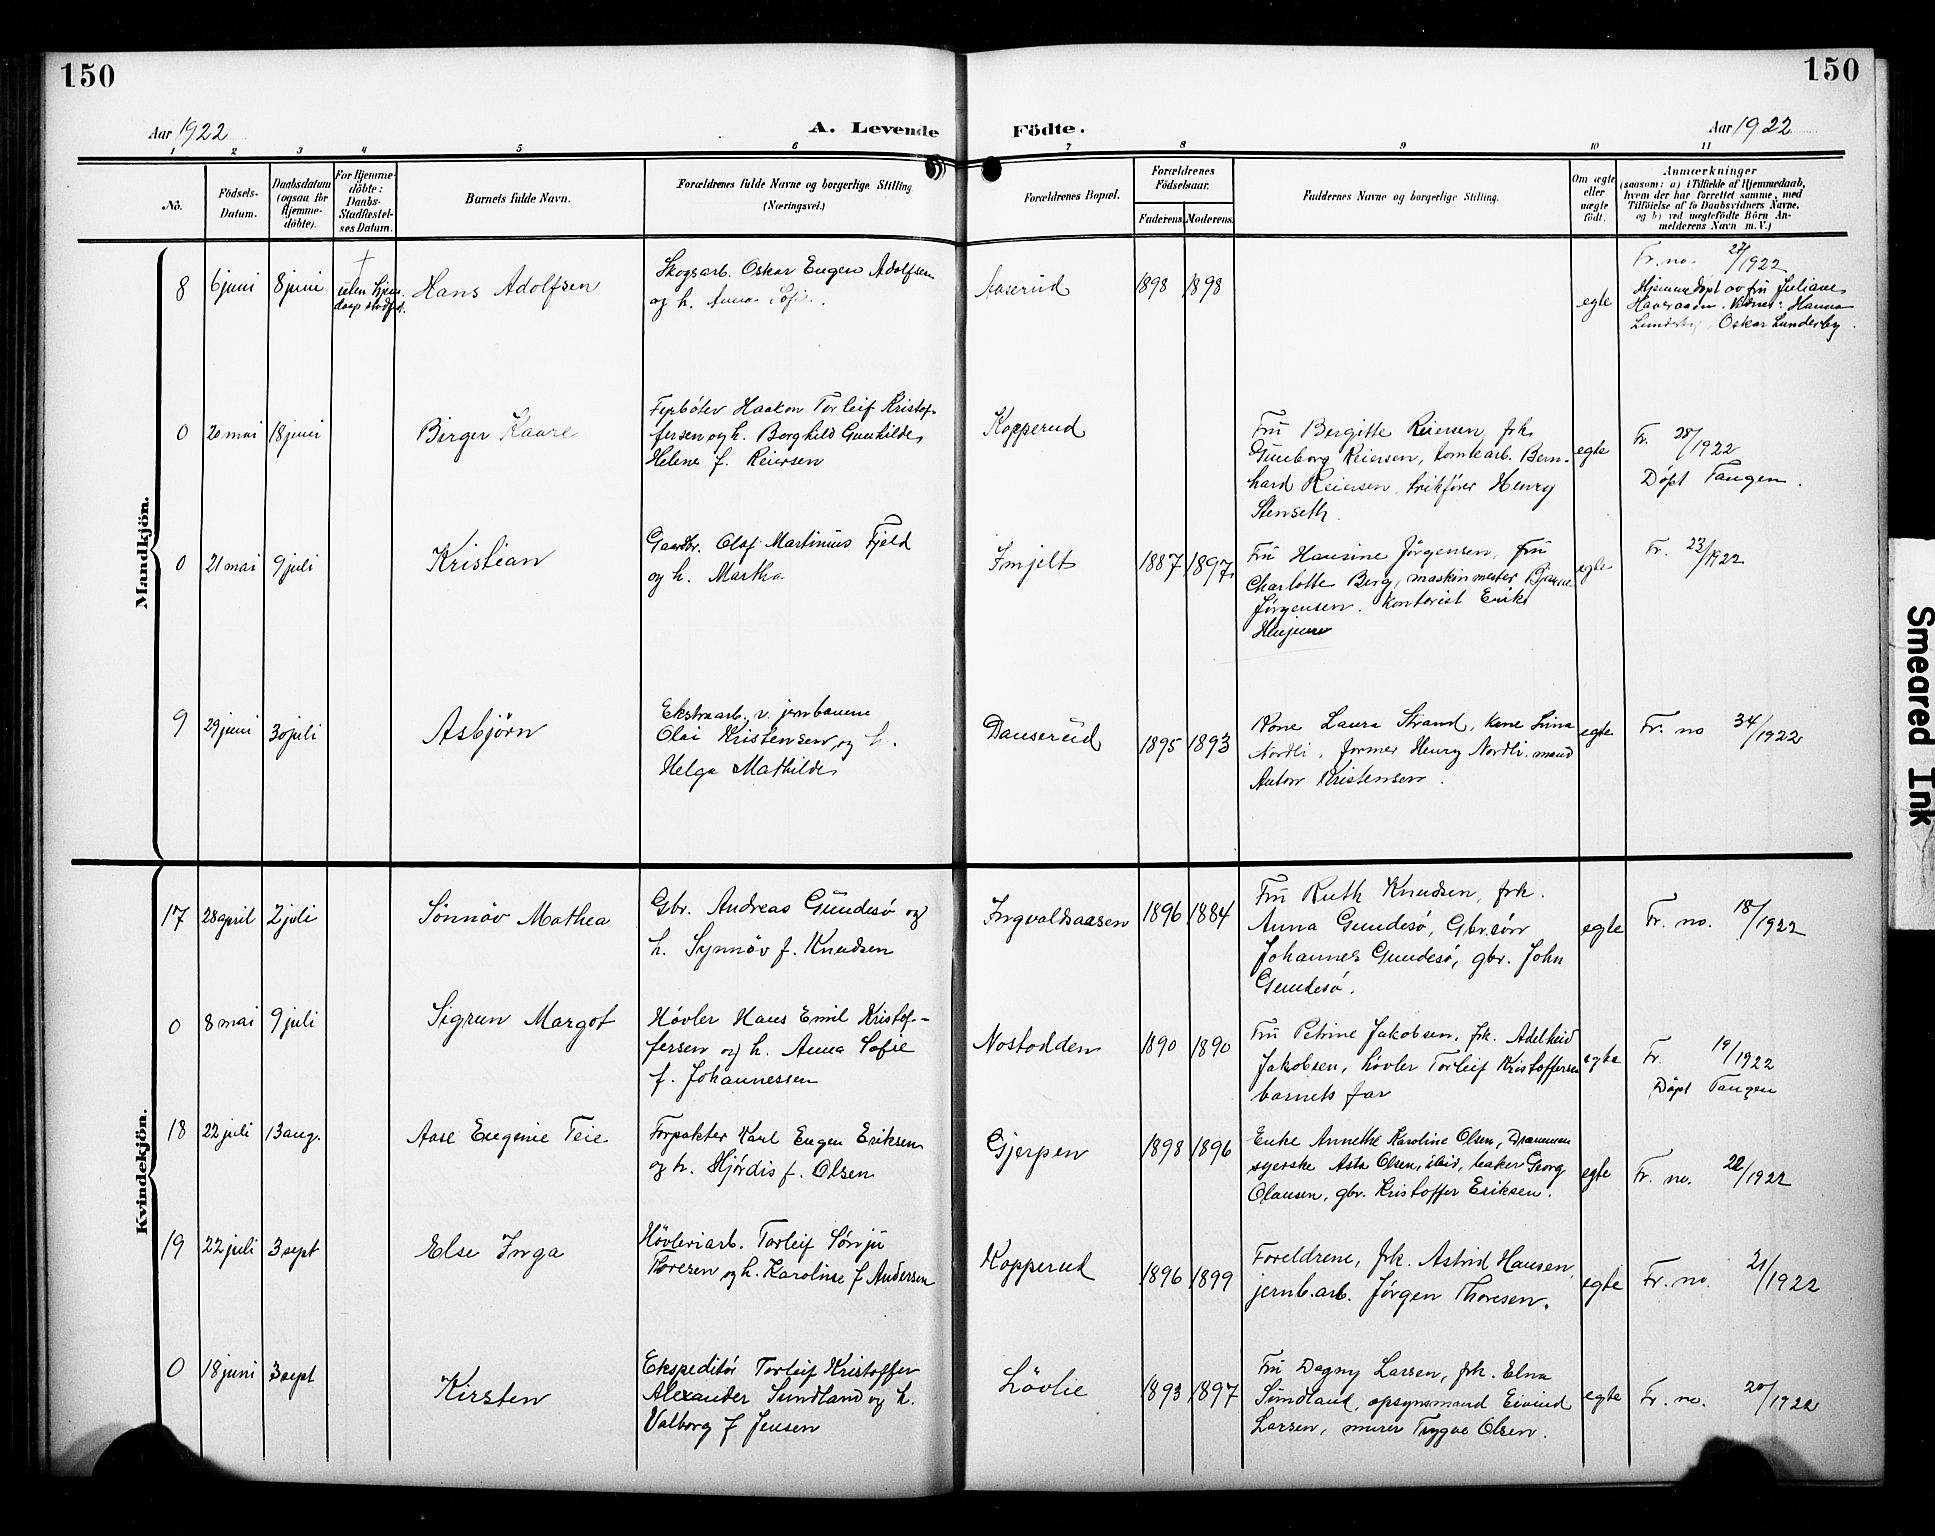 150
150
Aar 1922
A. Levende
Födte.
Aar 1922
1 2 3 4 5 6 7 8 9 10 11
No.
Födsels-
Datum.
Daabsdatum
(ogsaa for
Hjemme-
döbte).
For Hjemme-
döbte:
Daabs-
Stadfæstel-
ses Datum.
Barnets fulde Navn.
Forældrenes fulde Navne og borgerlige Stilling
(Næringsvei.)
Forældrenes Bopæl.
Forældrenes
Födselsaar.
Faderens. Moderens.
Faddernes Navne og borgerlige Stilling.
Om ægte
eller
uægte
födt.
Anmærkninger
(saasom: a) i Tilfælde af Hjemmedaab,
hvem der har forrettet samme, med
Tilföielse af to Daabsvidners Navne,
og b) ved uægtefödte Börn An-
melderens Navn m. V.)
Mandkjön.
8
6 juni
8 juni
†
uten hjem
daap stadf.
Hans Adolfsen
Skogsarb. Oskar Eugen Adolfsen
og h. Anna
Aaserud
1898
1898
egte
Fr. no. 27/1922
Hjemmedøpt av fru Juliane
Vidner: Hanna
Lunderby, Oskar Lunderby.
0
20 mai
18 juni
Birger Kaare
Fyrbøter Haakon Torleif Kristof-
fersen og h. Borghild Gunhilde
Helene f. Reiersen
Kopperud
Fru Bergitte Reiersen, frk.
Gunborg Reiersen, tomtearb. Bern-
hard Reiersen, Henry
Stenseth
egte
Fr. 28/1922
Døpt Tangen.
0
21 mai
9 juli
Kristian
Gaardbr. Olaf Martinius Fjeld
og h. Martha
Imjelt
1887
1897
Fru Hansine Jørgensen, fru
Charlotte Berg, maskinmester Bjarne
Jørgensen. Kontorist
egte
Fr. 23/1922
9
29 juni
30 juli
Asbjörn
Ekstraarb. v. jernbanene
Olai Kristensen og h.
Helga Mathilde
Danserud
1895
1893
Kone Laura Strand, kone
Nordli, former Henry Nordli.
Anton Kristensen.
egte
Fr. no 34/1922
Kvindekjön.
17
28 april
2 juli
Sönnöv Mathea
Gbr. Andreas Gundesö og
h. Synnöv f. Knudsen
Ingvaldsaasen
1896
1884
Fru Ruth Knudsen, frk.
Anna Gundesö, Gbr.sön
Johannes Gundesö, gbr. John
Gundesö.
egte
Fr. no. 18/1922
0
8 mai
9 juli
Sigrun Margot
Hövler Hans Emil Kristof-
fersen og h. Anna Sofie
f. Johannessen
Nostodden
1890
1890
Fru Petrine Jakobsen, frk. Adelheid
Jakobsen, hövler Torleif Kristoffersen
barnets far
egte
Fr. 19/1922
Døpt Tangen
18
22 juli
13 aug.
Aase Eugenie Teie
Forpakter Karl Eugen Eriksen
og h. Hjördis f. Olsen
Gjerpen
1898
1896
Enke Annette Karoline Olsen, Drammen
syerske Asta Olsen, ibid, baker Georg
Olausen, gbr. Kristoffer Eriksen.
egte
Fr. no. 22/1922
19
22 juli
3 sept
Else Inga
Hövleriarb. Torleif
Thoresen og h. Karoline f. Andersen
Kopperud
1896
1899
Foreldrene, frk. Astrid Hansen,
jernb.arb. Jörgen Thoresen.
egte
Fr. no. 21/1922
0
18 juni
3 sept
Kirsten
Ekspeditör Torleif Kristoffer
Alexander Sundland og h.
Valborg f. Jensen
Lövlie
1893
1897
Fru Dagny Larsen, frk. Elna
Sundland, opsynsmand Eivind
Larsen, murer Trygve Olsen.
egte
Fr. no. 20/1922
Smeared Ink